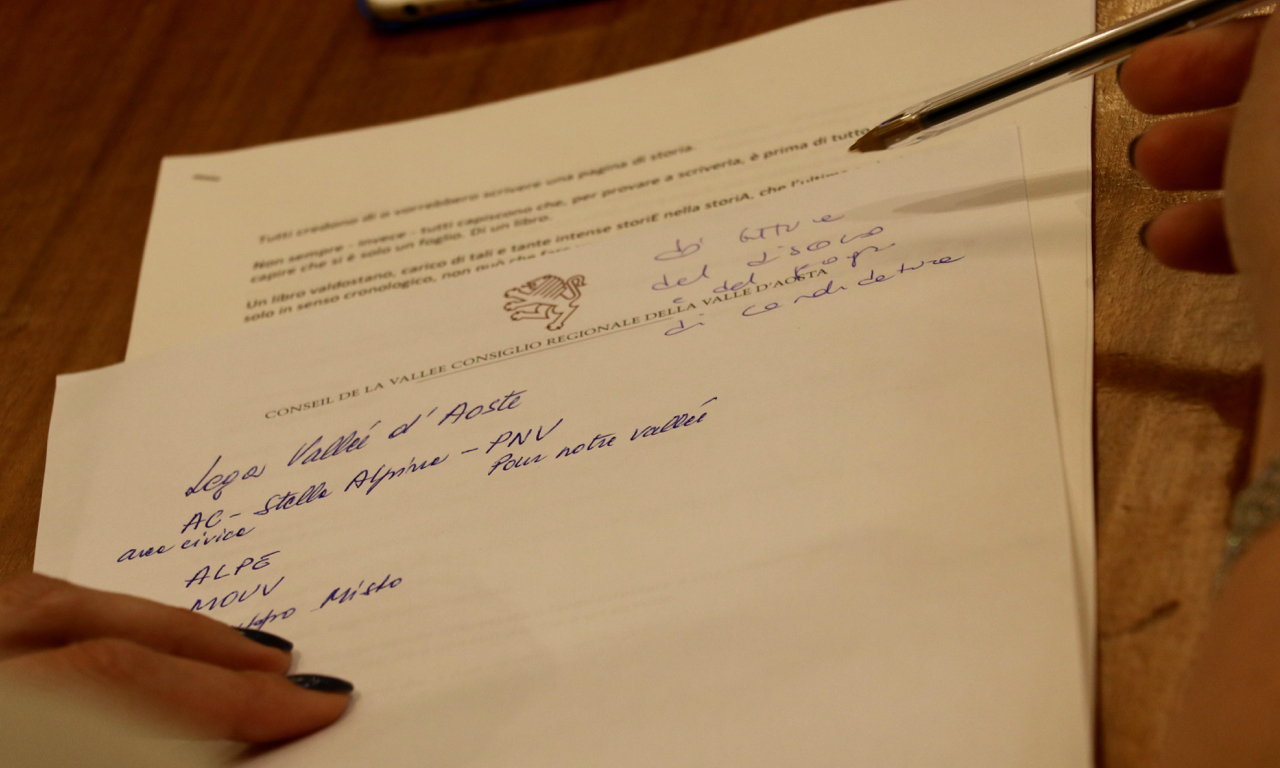 Tutti credono di o vorrebbero scrivere una pagina di storia.
Non sempre - invece - tutti capiscono che, per provare a scriverla, è prima di tutto
capire che si è solo un foglio. Di un libro.
Un libro valdostano, carico di tali e tante intense storiE nella storiA, che l'ultimo
solo in senso cronologico, non può che fare
del
e del
di candidature
CONSEIL DE LA VALLEE CONSIGLIO REGIONALE DELLA VALLE D'AOSTA
Lega Vallée d'Aoste
AC - Stella Alpina - PNV
area civica Pour notre vallée
ALPE
MOUV
Misto